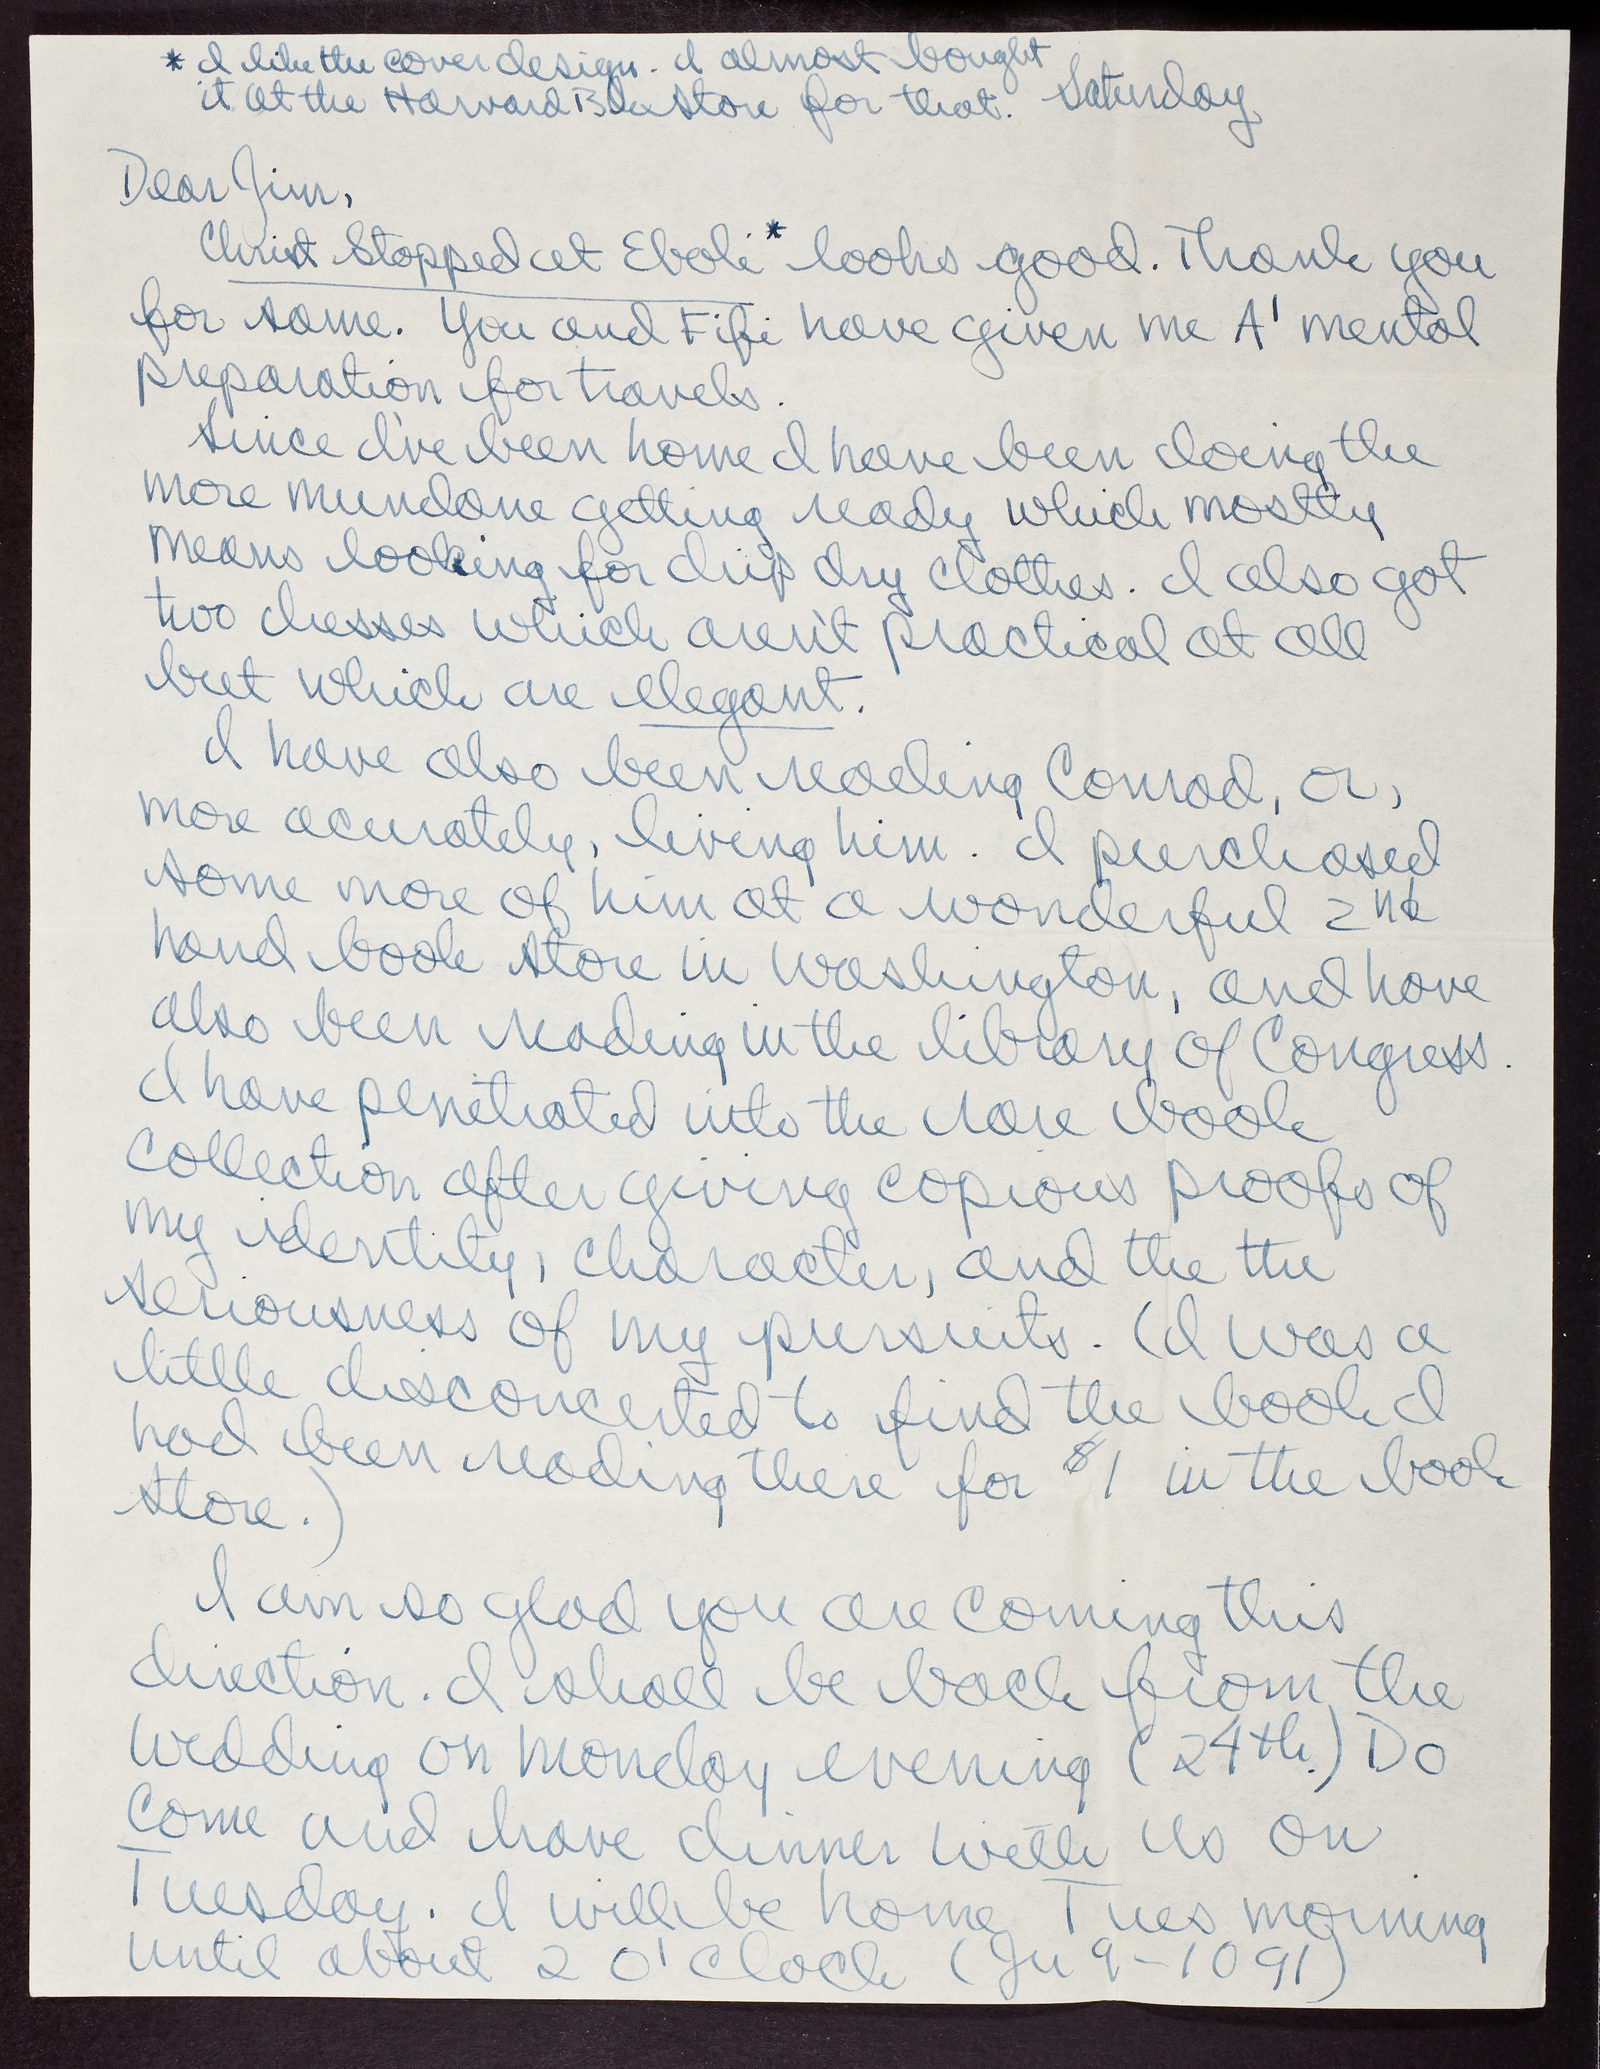 * I like the cover design. I almost bought
it at the Harvard Bk Store for that. Saturday
Dear Jim,
Christ Stopped at Eboli* looks good. Thank you
for same. You and Fifi have given me A' mental
preparation for travels.
Since I've been home I have been doing the
more mundane getting ready which mostly
means looking for drip dry clothes. I also got
two dresses which aren't practical at all
but which are elegant.
I have also been reading Conrad, or,
more acurately, living him. I purchased
some more of him at a wonderful 2nd
hand book store in Washington, and have
also been reading in the library of Congress.
I have penetrated into the rare book
collection after giving copious proofs of
my identity, character, and the the
seriousness of my pursuits. (I was a
little disconcerted to find the book I
had been reading there for $1 in the book
store.)
I am so glad you are coming this
direction. I shall be back from the
wedding on Monday evening (24th.) Do
come and have dinner with us on
Tuesday. I will be home Tues morning
until about 2 O'Clock (Ju 9-1091)